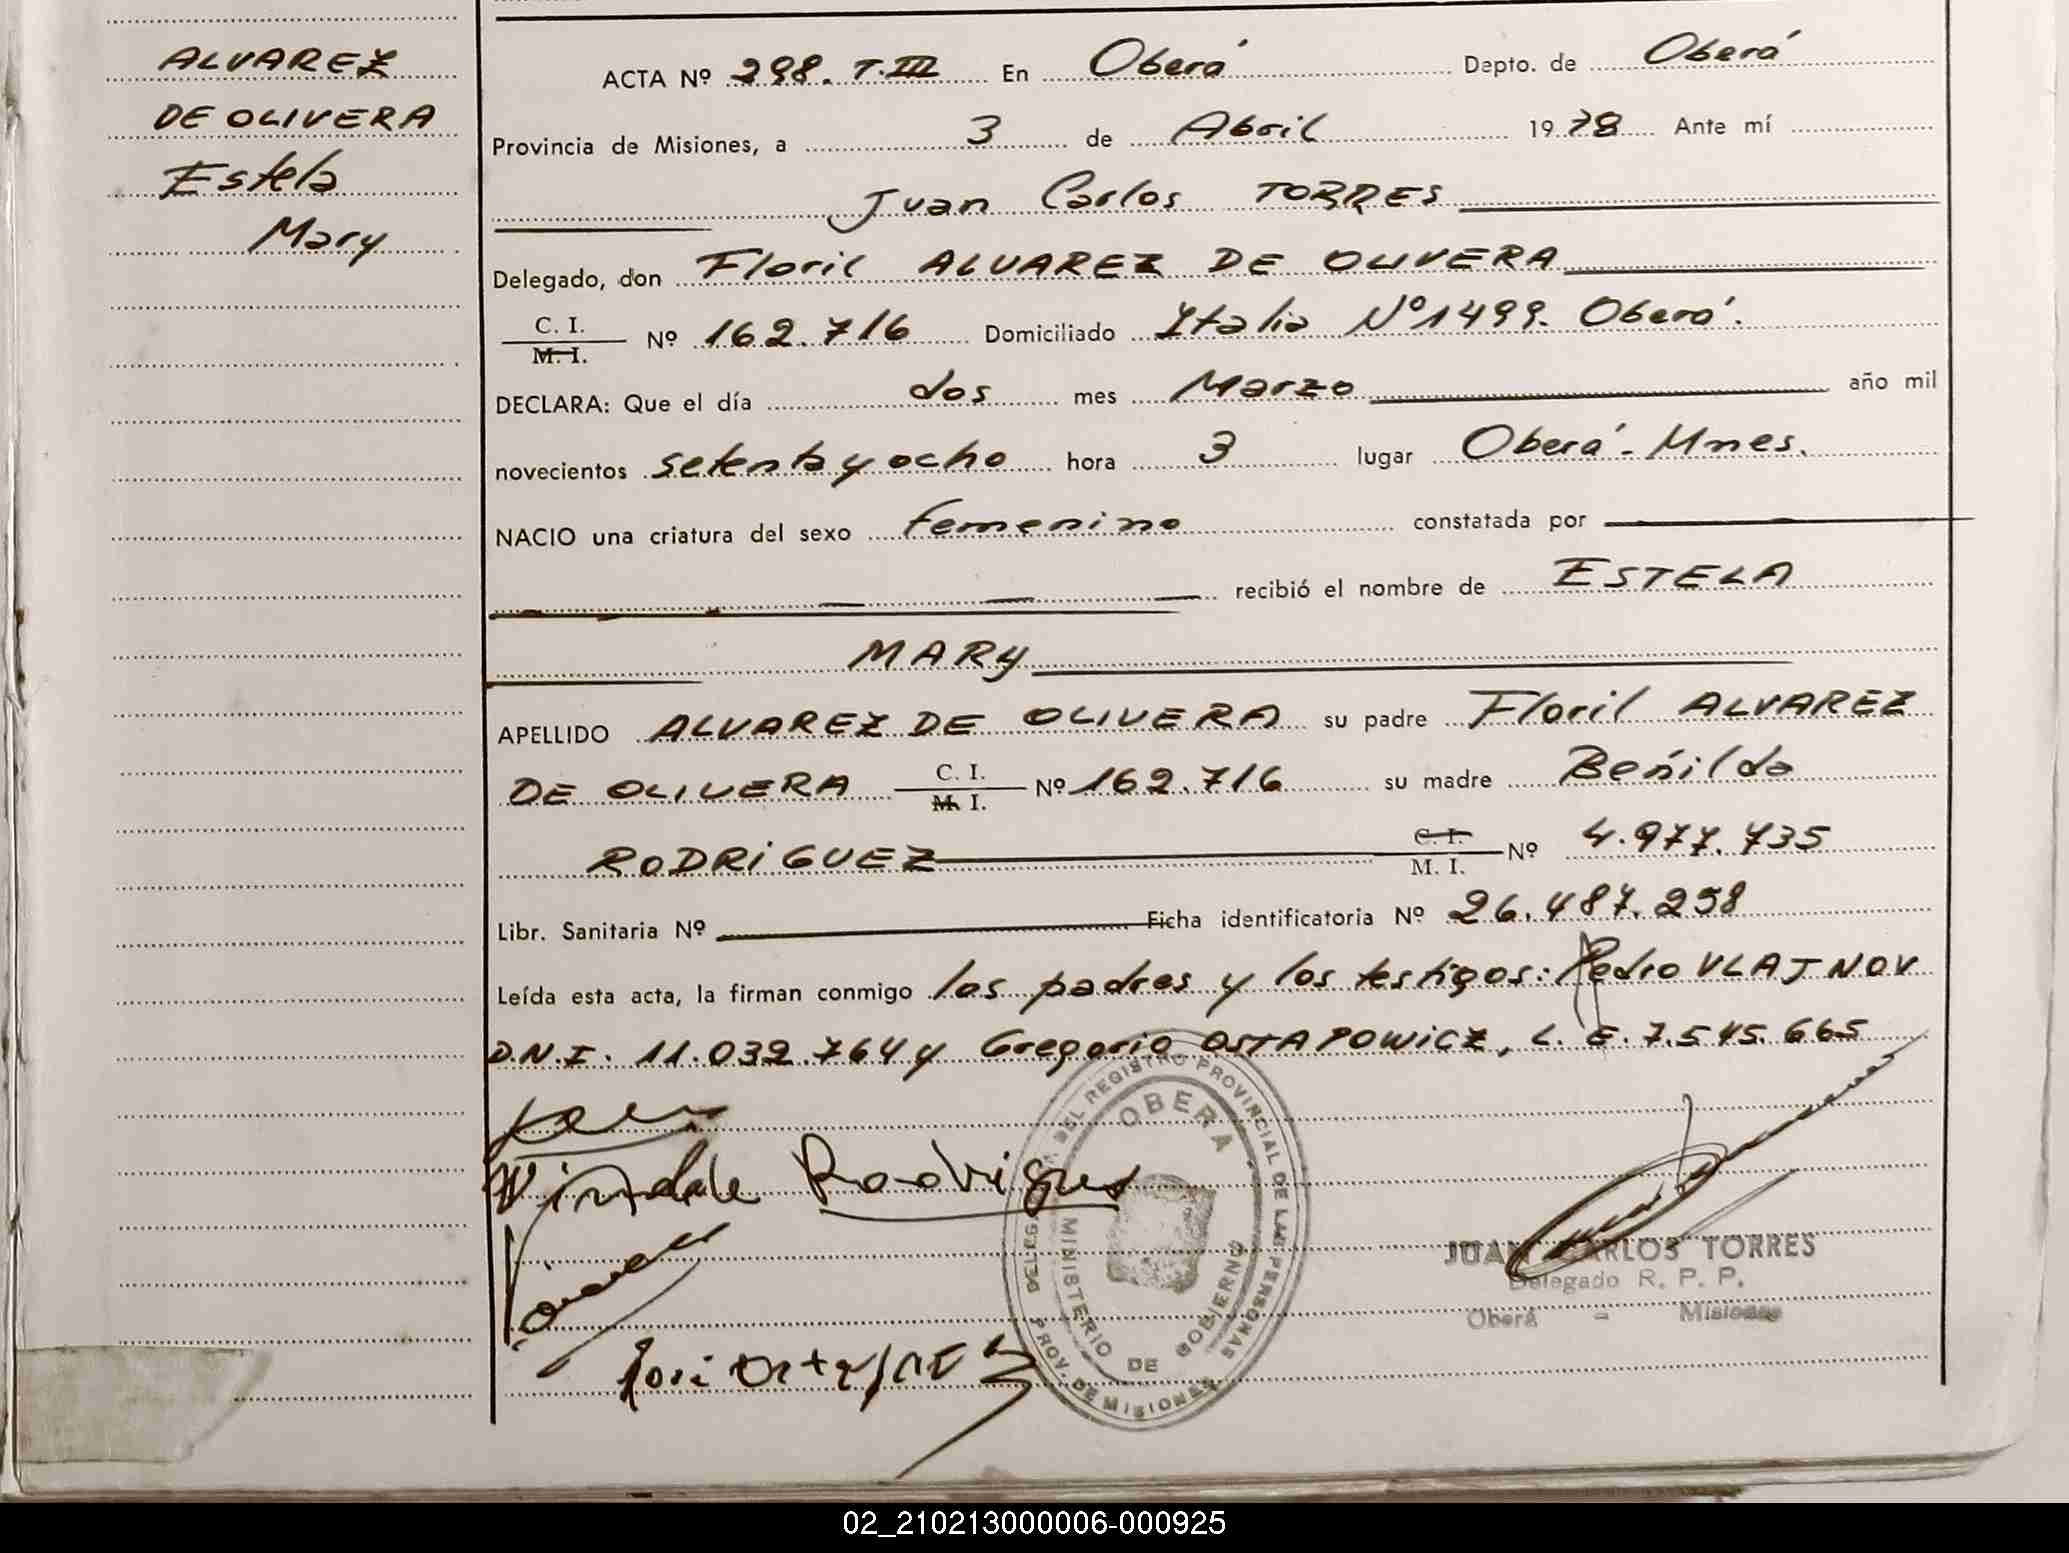 ALVAREZ
DE OLIVERA
Estela
Mary
ACTA Nº 298. T.III En Oberá Depto. de Oberá
Provincia de Misiones, a 3 de Abril 1978 Ante mí
Juan Carlos TORRES
Delegado, don Floril ALVAREZ DE OLIVERA
C. I.
M. I. Nº 162.716 Domiciliado Italia Nº 1499. Oberá.
DECLARA: Que el día dos mes Marzo año mil
novecientos setenta y ocho hora 3 lugar Oberá - Mnes.
NACIO una criatura del sexo femenino constatada por
recibió el nombre de ESTELA
MARY
APELLIDO ALVAREZ DE OLIVERA su padre Floril ALVAREZ
DE OLIVERA C. I. M. I. Nº 162.716 su madre Beñilda
RODRIGUEZ C. I. M. I. Nº 4.977.735
Libr. Sanitaria Nº Ficha identificatoria Nº 26.487.298
Leída esta acta, la firman conmigo los padres y los testigos: Pedro VLAJNOV
D.N.I. 11.032.764 y Gregorio OSTAPOWICZ, L. E. 7.545.665
Rodrigues
DEL REGISTRO PROVINCIAL DE LAS PERSONAS
OBERA
MINISTERIO DE GOBIERNO
PROV. DE MISIONES
JUAN CARLOS TORRES
Delegado R. P. P.
Oberá - Misiones
02_210213000006-000925